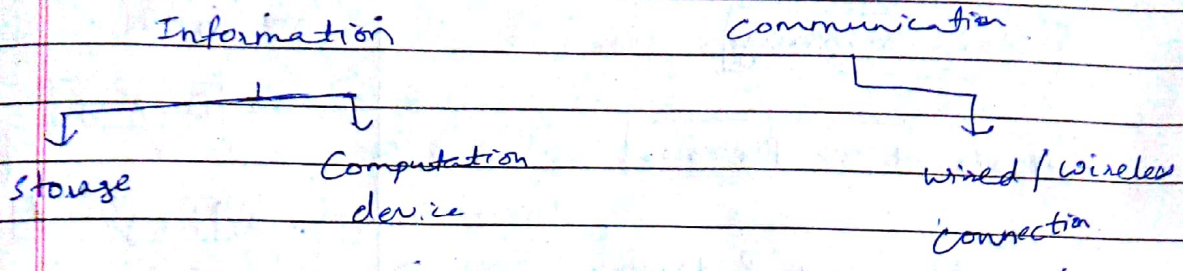 Information communication
storage Computation wired / wireless
device connection